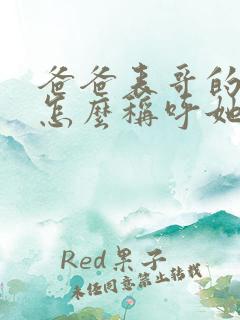 爸爸表哥的
怎麼稱呼她
Red果子
未经同意禁止转载